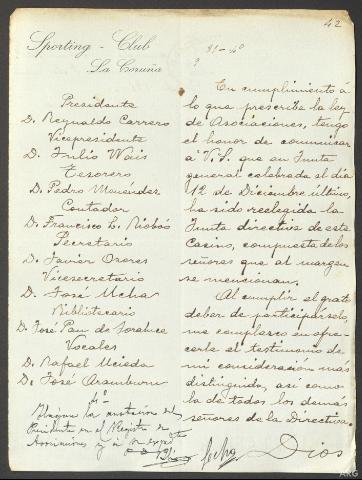 42
Sporting-Club
La Coruña
31-4º
Presidente
D. Reynaldo Carrero
Vicepresidente
D. Julio Wais
Tesorero
D. Pedro Menéndez
Contador
D. Francisco L. Rioboó
Secretario
D. Javier Ozores
Vicesecretario
D. José Ucha
Bibliotecario
D. José Pan de Soraluce
Vocales
D. Rafael Uceda
D. José Aramburu
En cumplimiento á
lo que prescribe la ley
de Asociaciones, tengo
el honor de comunicar
a V.S. que en Junta
general celebrada el día
12 de Diciembre último,
ha sido reelegida la
Junta directiva de este
Casino, compuesta de los
señores que al margen
se mencionan.
Al cumplir el grato
deber de participárselo,
me complazco en ofre-
cerle el testimonio de
mi consideración más
distinguida, así como
la de todos los demás
señores de la Directiva.
Dios
la anotación del
Presidente en el Registro de
Asociaciones y á su expdte